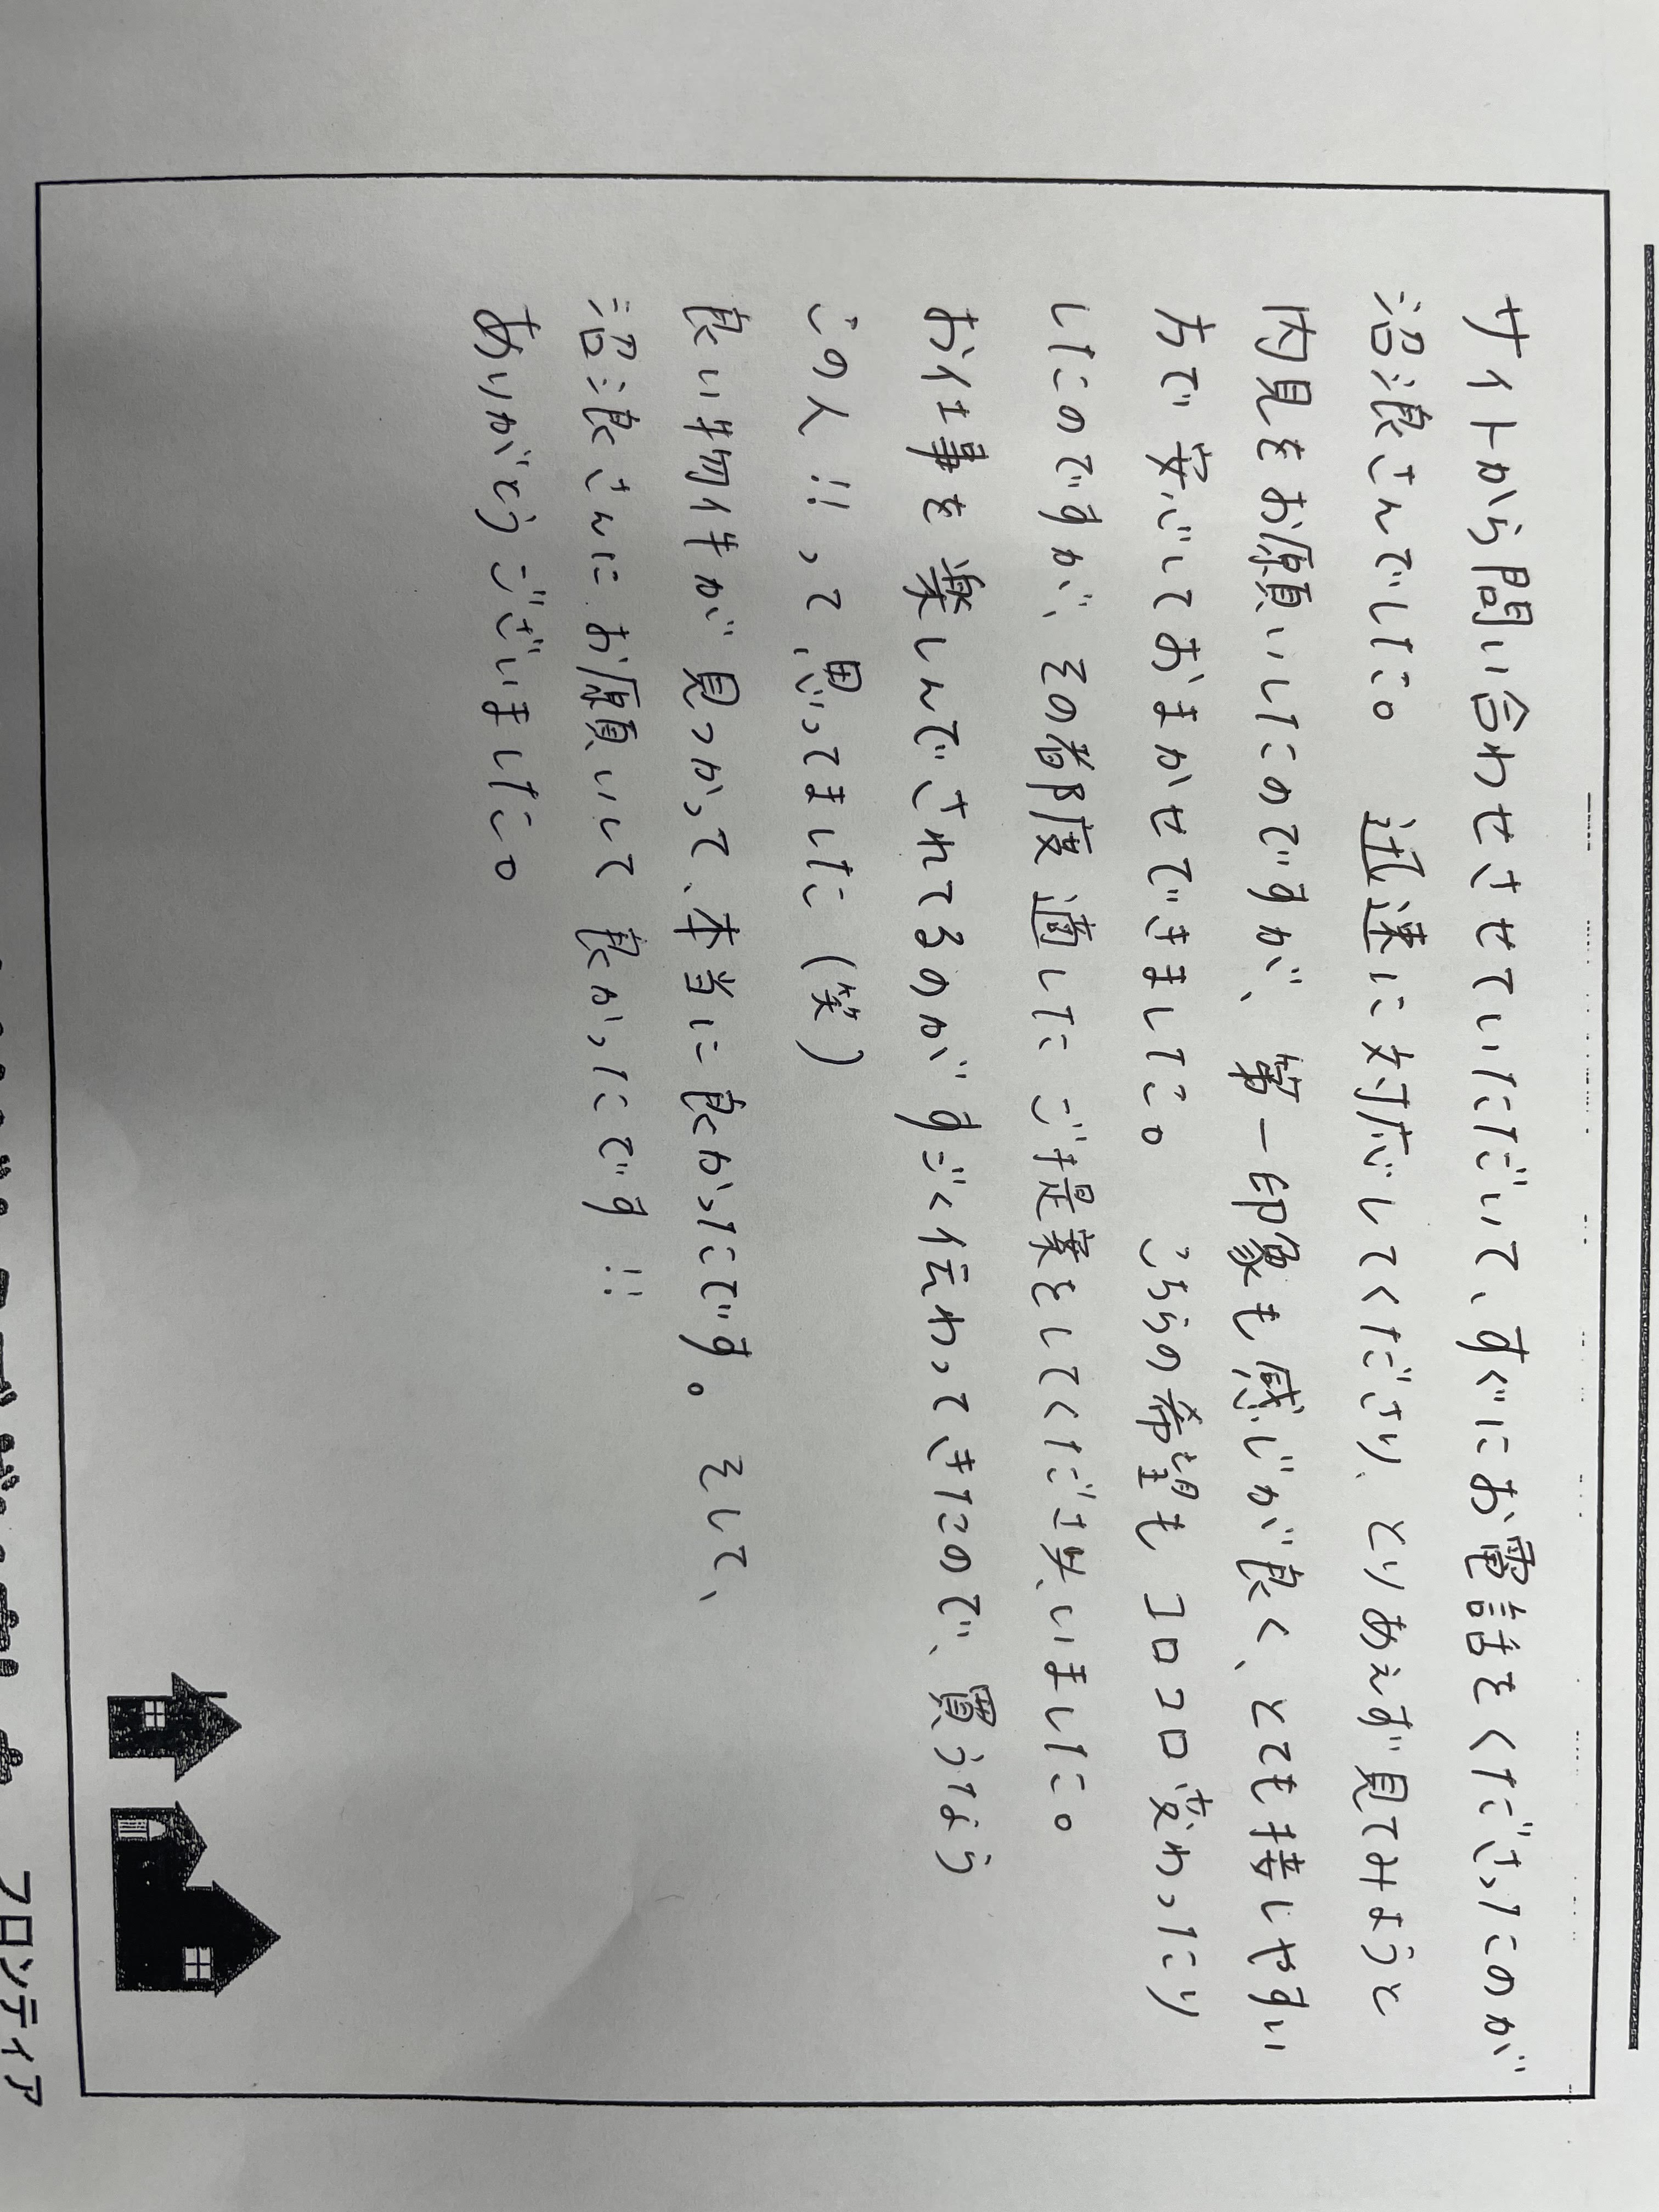 サイトから問い合わせさせていただいて、すぐにお電話をくださったのが
沼浪さんでした。 迅速に対応してくださり、とりあえず見てみようと
内見をお願いしたのですが、第一印象も感じが良く、とても接しやすい
方で安心しておまかせできました。 こちらの希望もコロコロ変わったり
したのですが、その都度適したご提案をしてくださいました。
お仕事を楽しんでされてるのがすごく伝わってきたので、買うなら
この人!!って思ってました(笑)
良い物件が見つかって、本当に良かったです。 そして、
沼浪さんにお願いして良かったです!!
ありがとうございました。
フロンティア